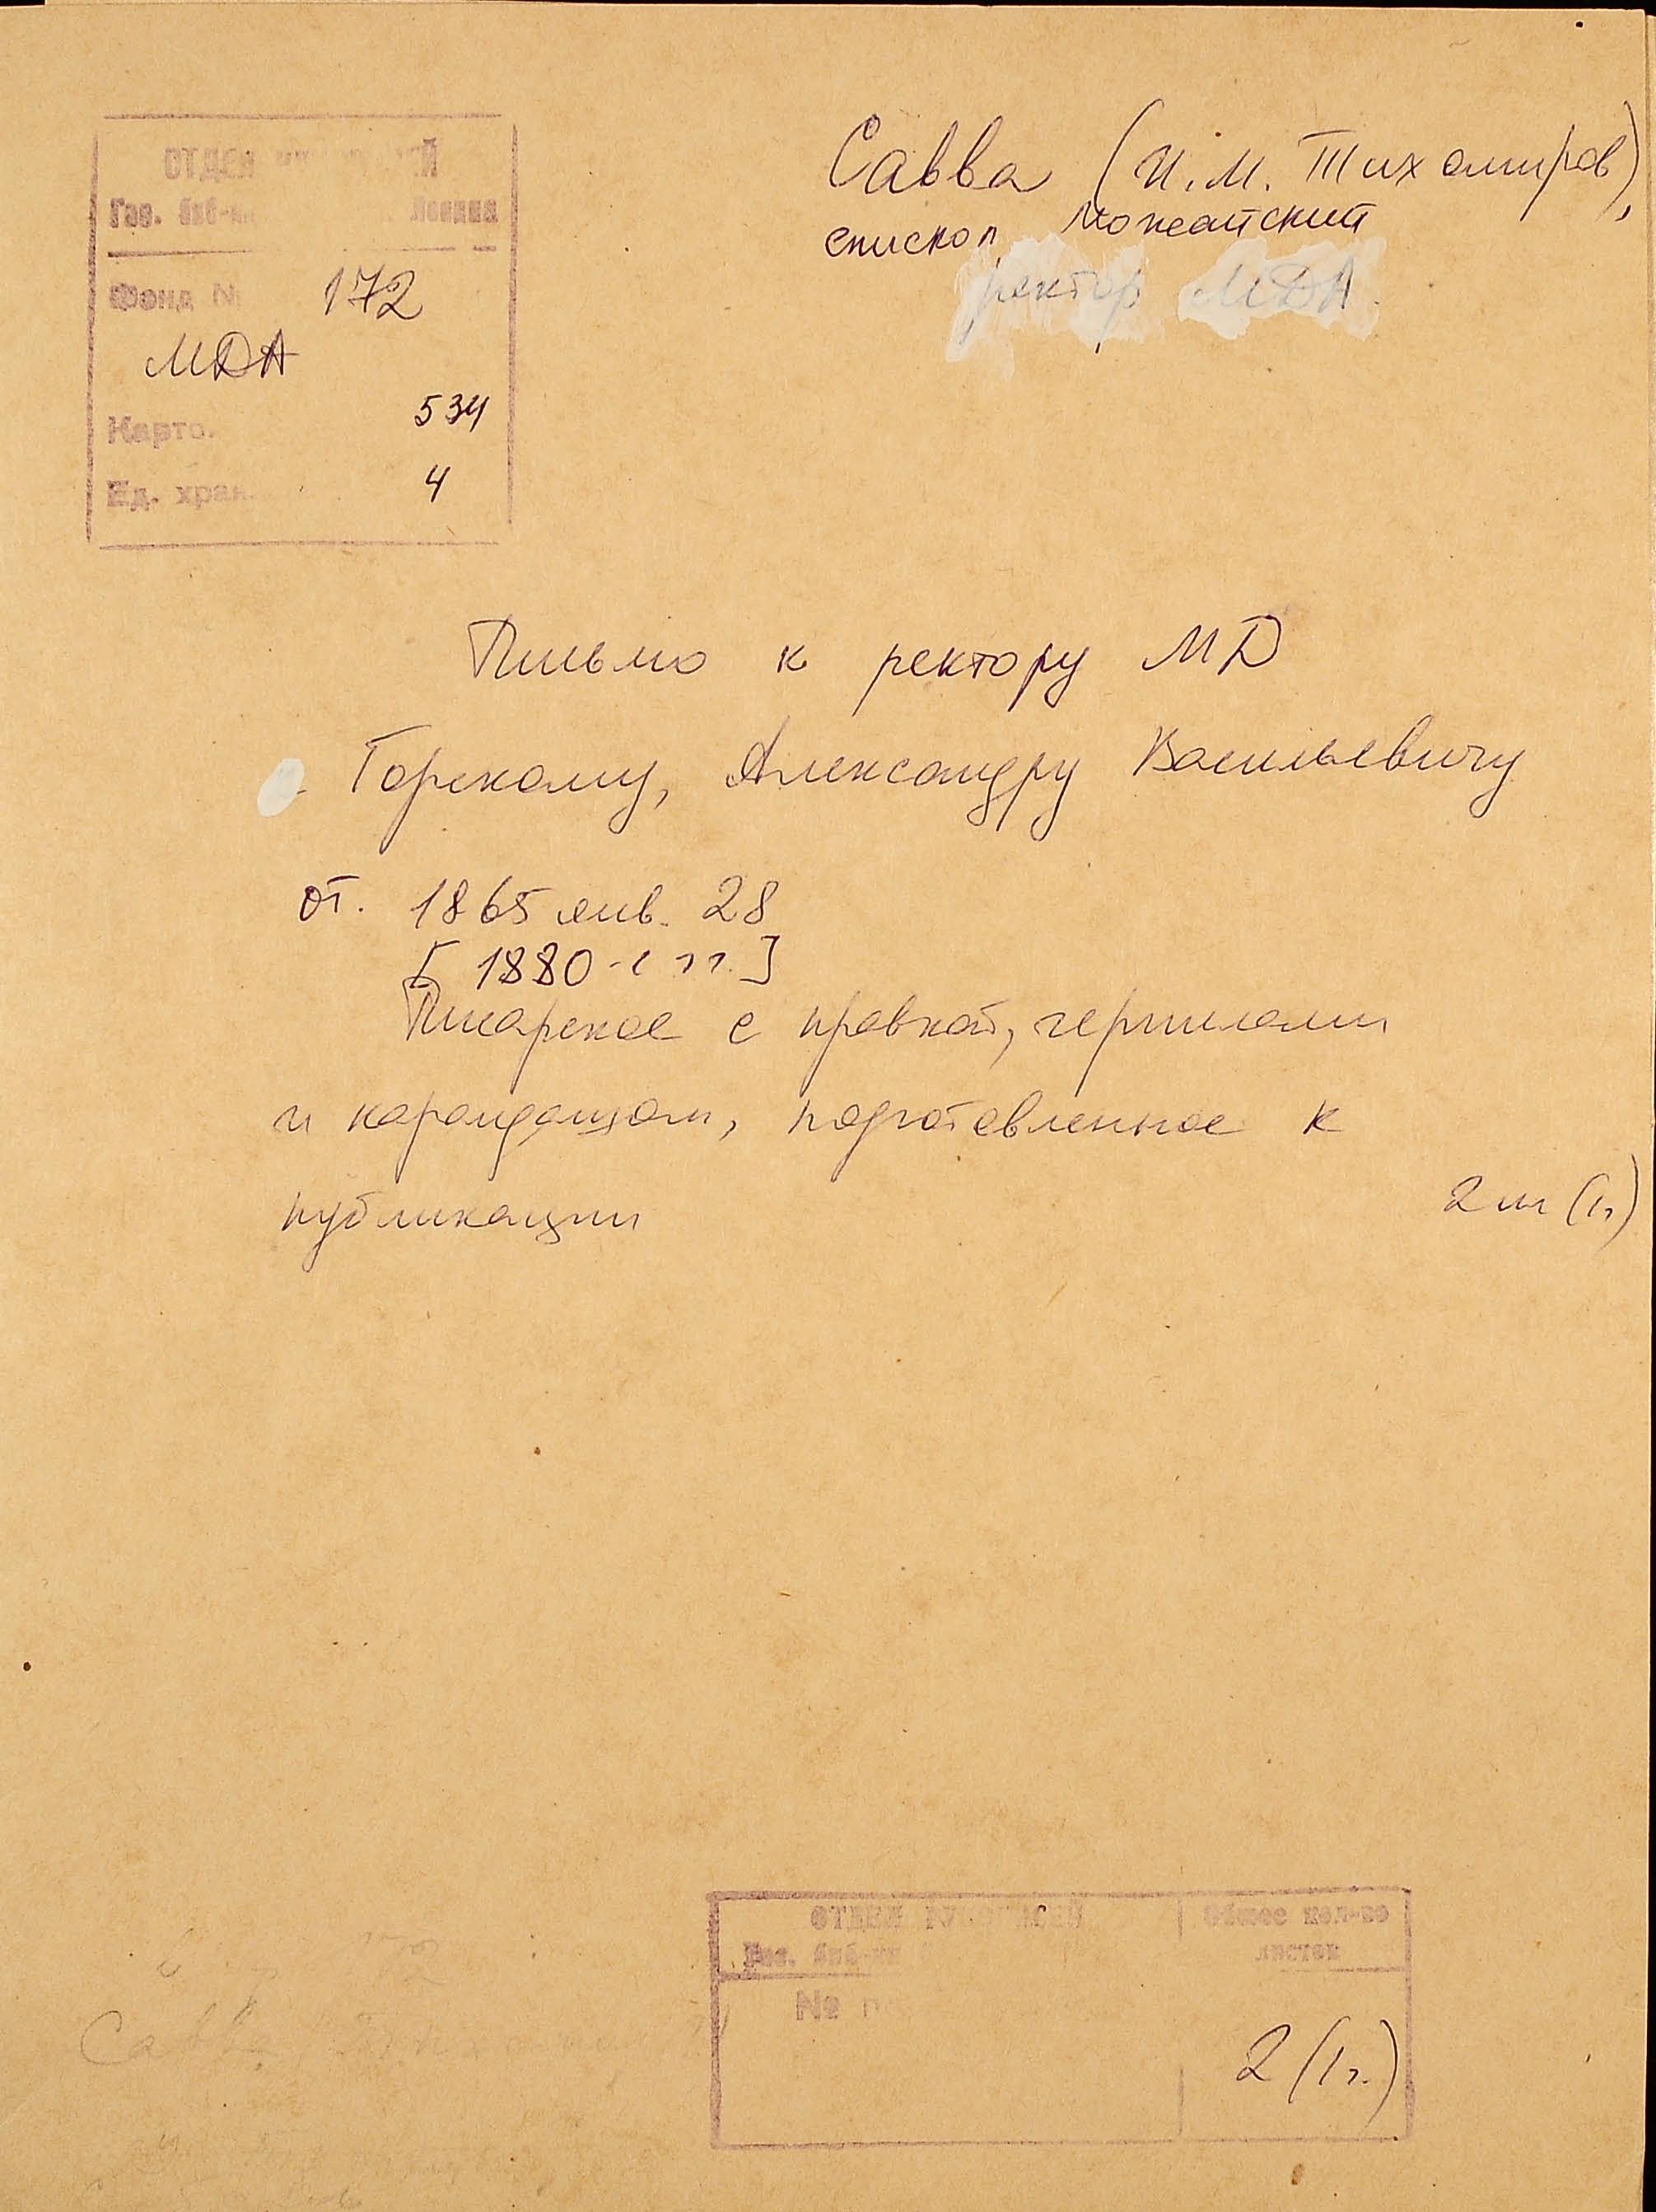 ОТДЕЛ
Гос. биб-ка Ленина
Фонд № 172
МДА
Карто. 534
Ед. хран. 4
Савва (И. М. Тихомиров),
епископ Можайский
ректор МДА
Письмо к ректору МД
Горскому, Александру Васильевичу
от. 1865 янв. 28
[1880-е гг.]
Писарское с правкой, чернилами
и карандашом, подготовленное к
публикации
2 лл (1п)
ОТДЕЛ РУКОПИСЕЙ
Гос. биб-ка
Общее кол-во
листов
№
2 (1п.)
Савва